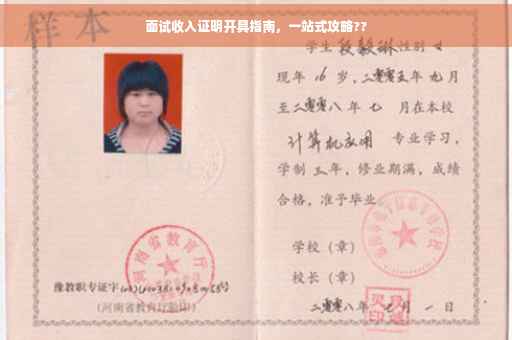 面试收入证明开具指南，一站式攻略??
样本
学生段毅琳性别女
现年16岁，二零零五年九月
至二零零八年七月在本校
计算机应用 专业学习，
学制三年，修业期满，成绩
合格，准予毕业。
学校（章）
校长（章）
二零零八年七月一日
河南省教育厅
豫教职专证字
（河南省教育厅验印）